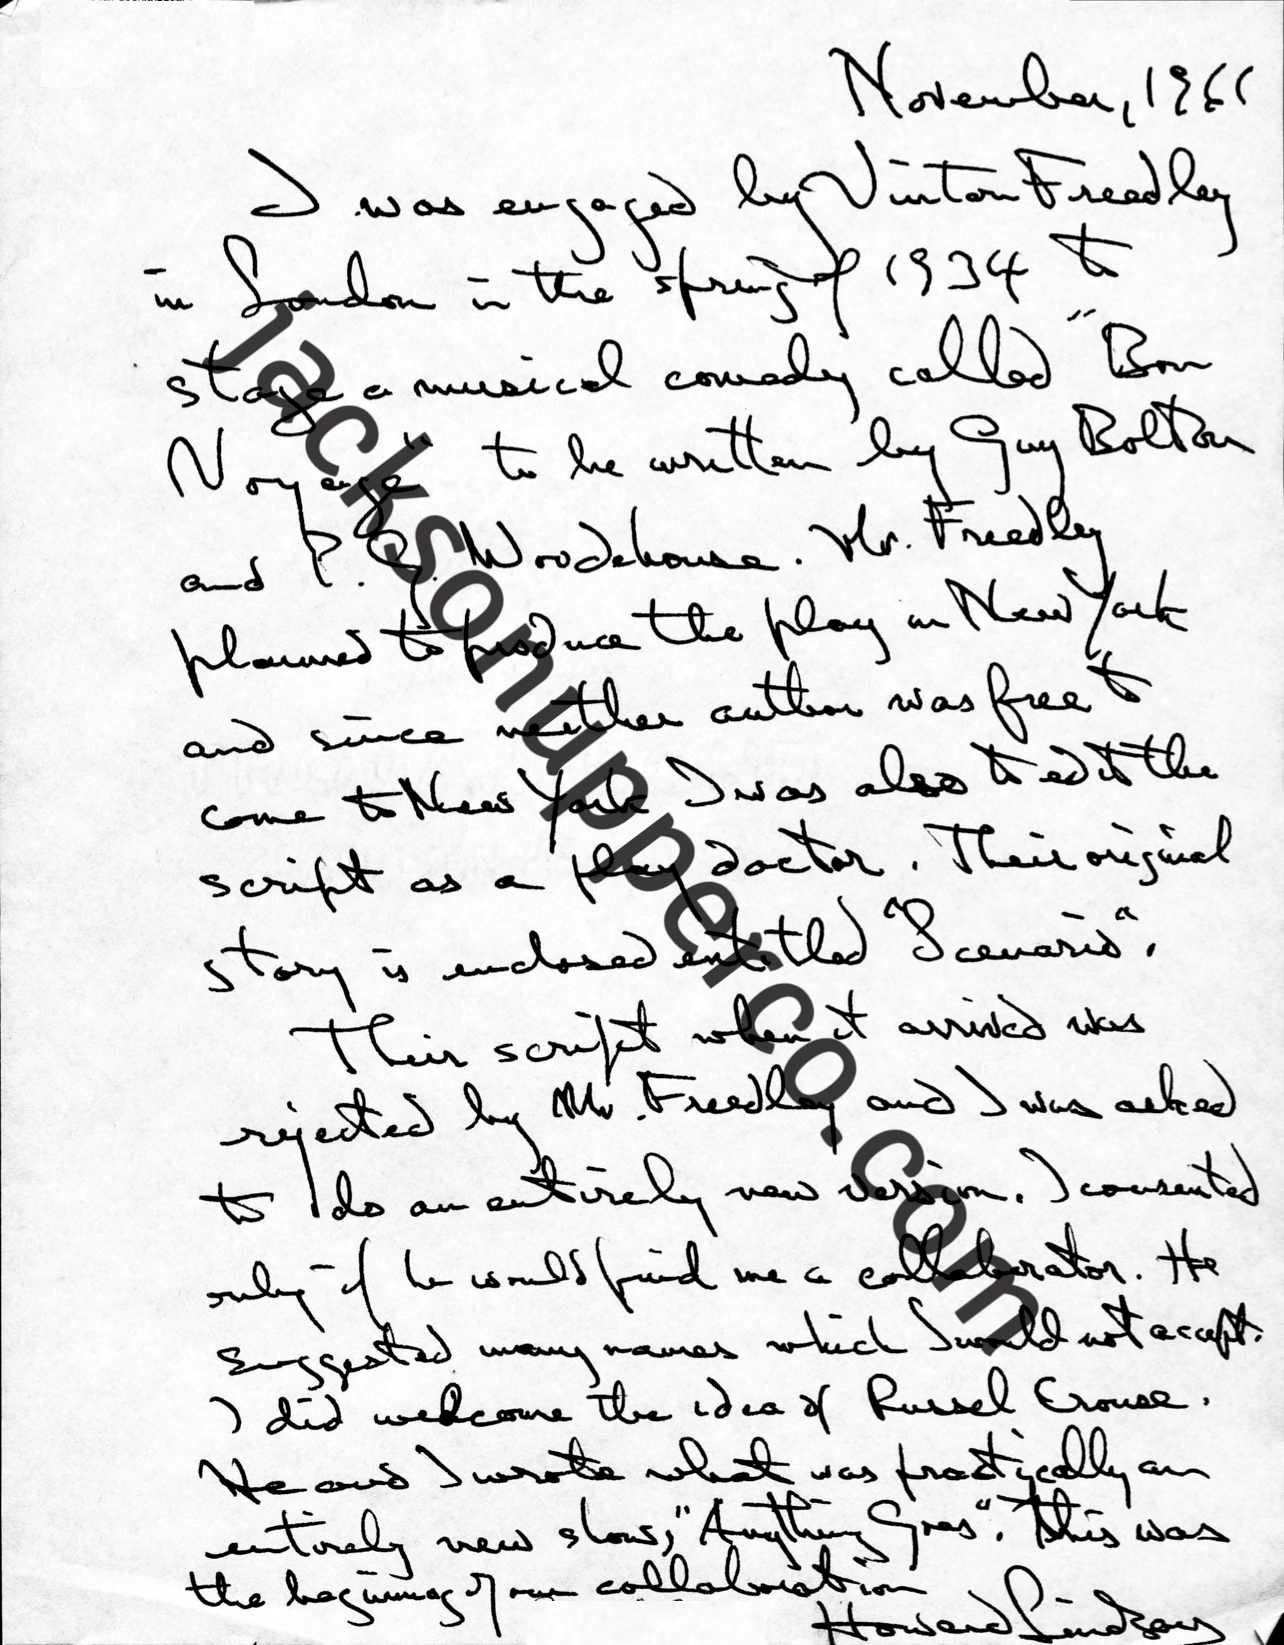 November, 1961
I was engaged by Vinton Freedley
in London in the spring of 1934 to
stage a musical comedy called "Bon
Voyage" to be written by Guy Bolton
and P. G. Woodehouse. Mr. Freedley
planned to produce the play in New York
and since neither author was free to
come to New York I was also to edit the
script as a play doctor. Their original
story is enclosed entitled "Scenario".
Their script when it arrived was
rejected by Mr. Freedley and I was asked
to do an entirely new version. I consented
only if he would find me a collaborator. He
suggested many names which I would not accept.
I did welcome the idea of Russel Crouse.
He and I wrote what was practically an
entirely new show, "Anything Goes". This was
the beginning of our collaboration
Howard Lindsay
jacksonupperco.com